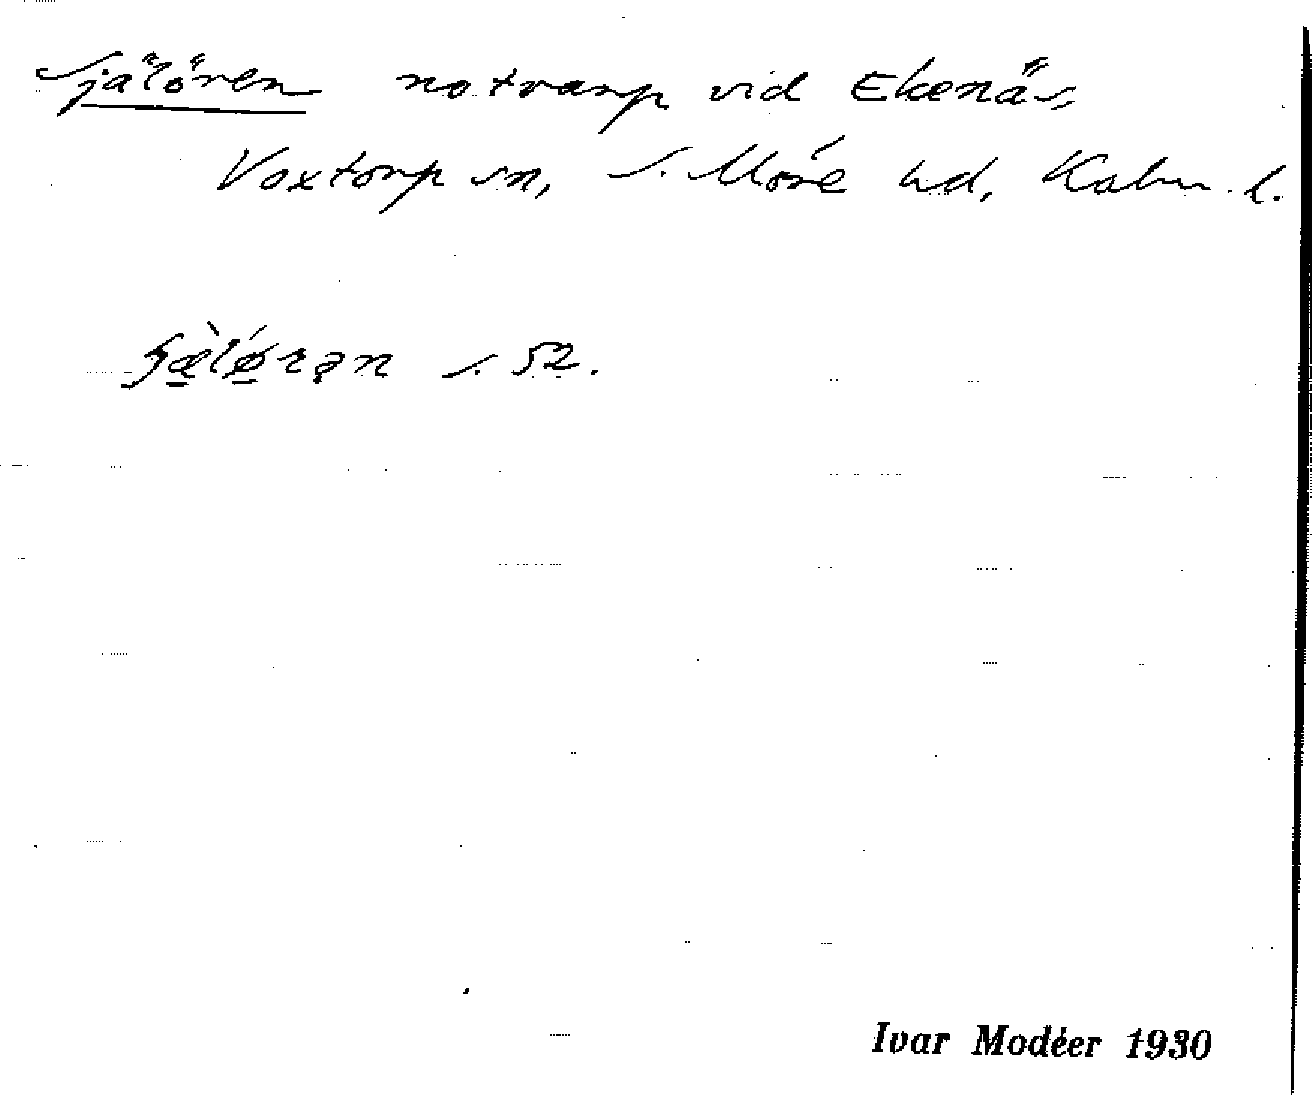 Själören notvarp vid Ekenäs,
Voxtorp sn, S. Möre hd, Kalm. l.
s. 52.
Ivar Modéer 1930